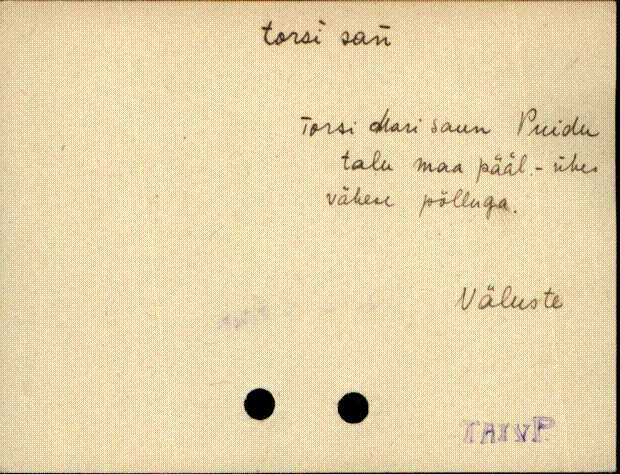 torsi sań
Torsi Mari saun Puidu
talu maa pääl. - ühes
vähese põlluga.
Väluste